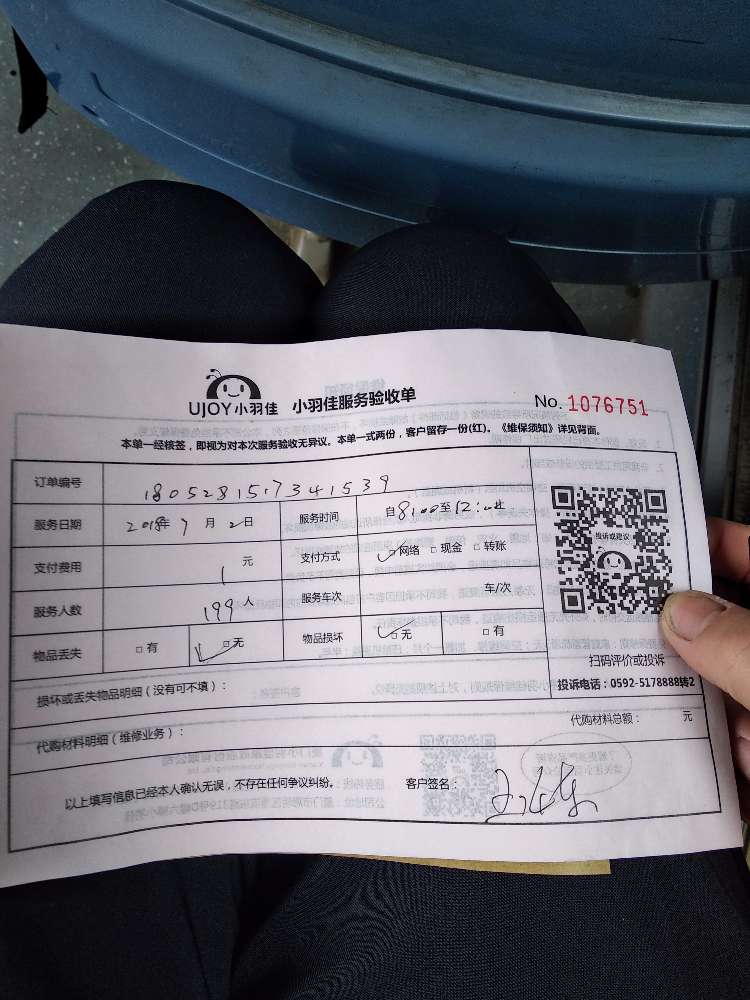 UJOY小羽佳 小羽佳服务验收单 No. 1076751
本单一经核签，即视为对本次服务验收无异议。本单一式两份，客户留存一份(红)。《维保须知》详见背面。
订单编号 1805281517341539
服务日期 2018年7月2日 服务时间 自8:00至12:00止
支付费用 1元 支付方式 ✓网络 □现金 □转账
服务人数 199人 服务车次 车/次
物品丢失 □有 ✓□无 物品损坏 ✓□无 □有
投诉或建议
扫码评价或投诉
投诉电话：0592-5178888转2
损坏或丢失物品明细（没有可不填）：
代购材料明细（维修业务）： 代购材料总额： 元
以上填写信息已经本人确认无误，不存在任何争议纠纷。 客户签名：